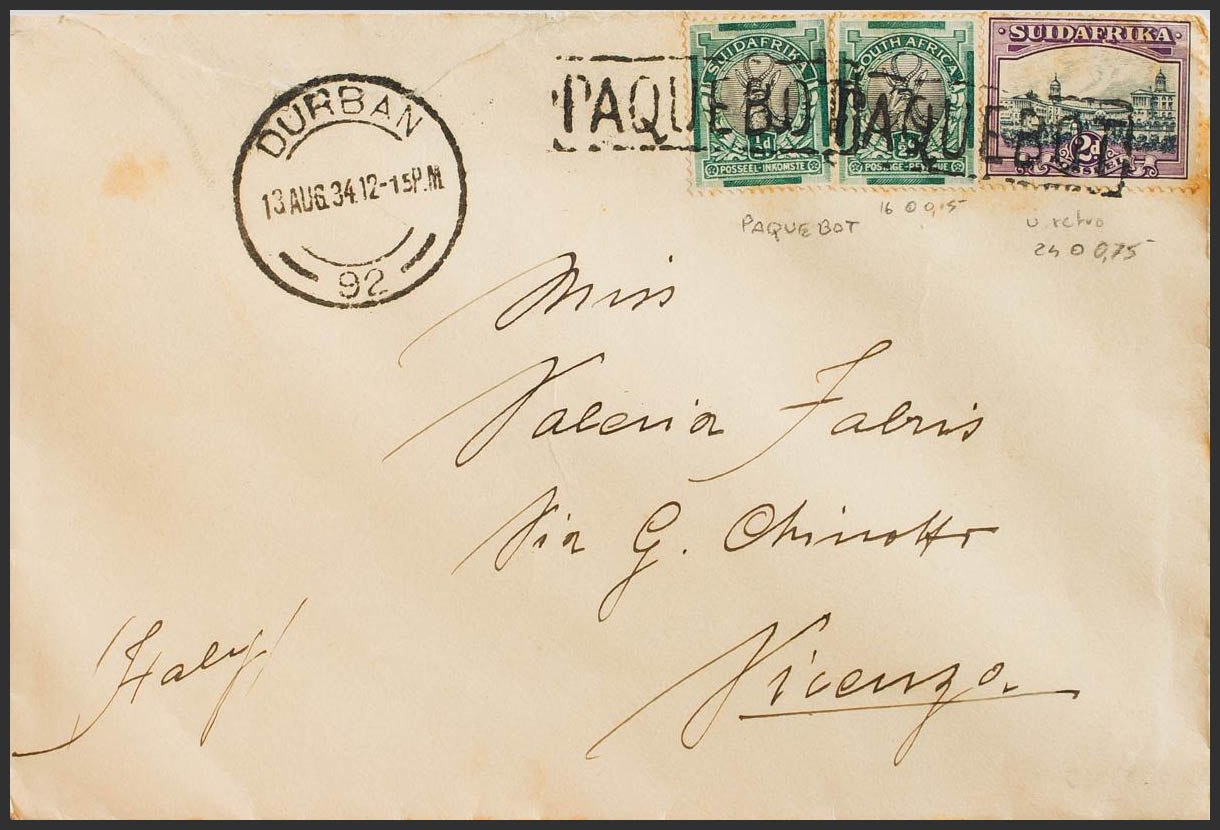 DURBAN
13 AUG 34.12-15P.M
92
PAQUEBOT PAQUEBOT
SUIDAFRIKA
½d
POSSEEL-INKOMSTE
SOUTH AFRICA
POSTAGE-REVENUE
·SUIDAFRIKA·
2d
PAQUEBOT
16 ʘ 0,15
24 ʘ 0,75
Miss
Valeria Fabris
Via G. Chinotto
Vicenza.
(Italy)